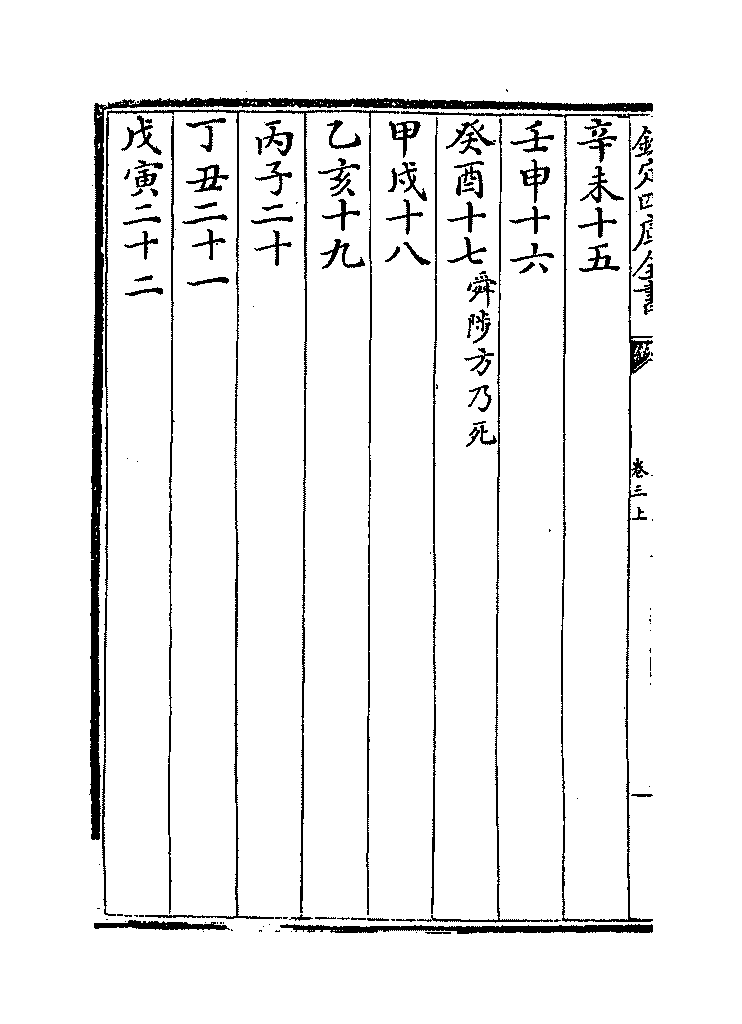 欽定四庫全書
卷三上
辛未十五
壬申十六
癸酉十七舜陟方乃死
甲戌十八
乙亥十九
丙子二十
丁丑二十一
戊寅二十二